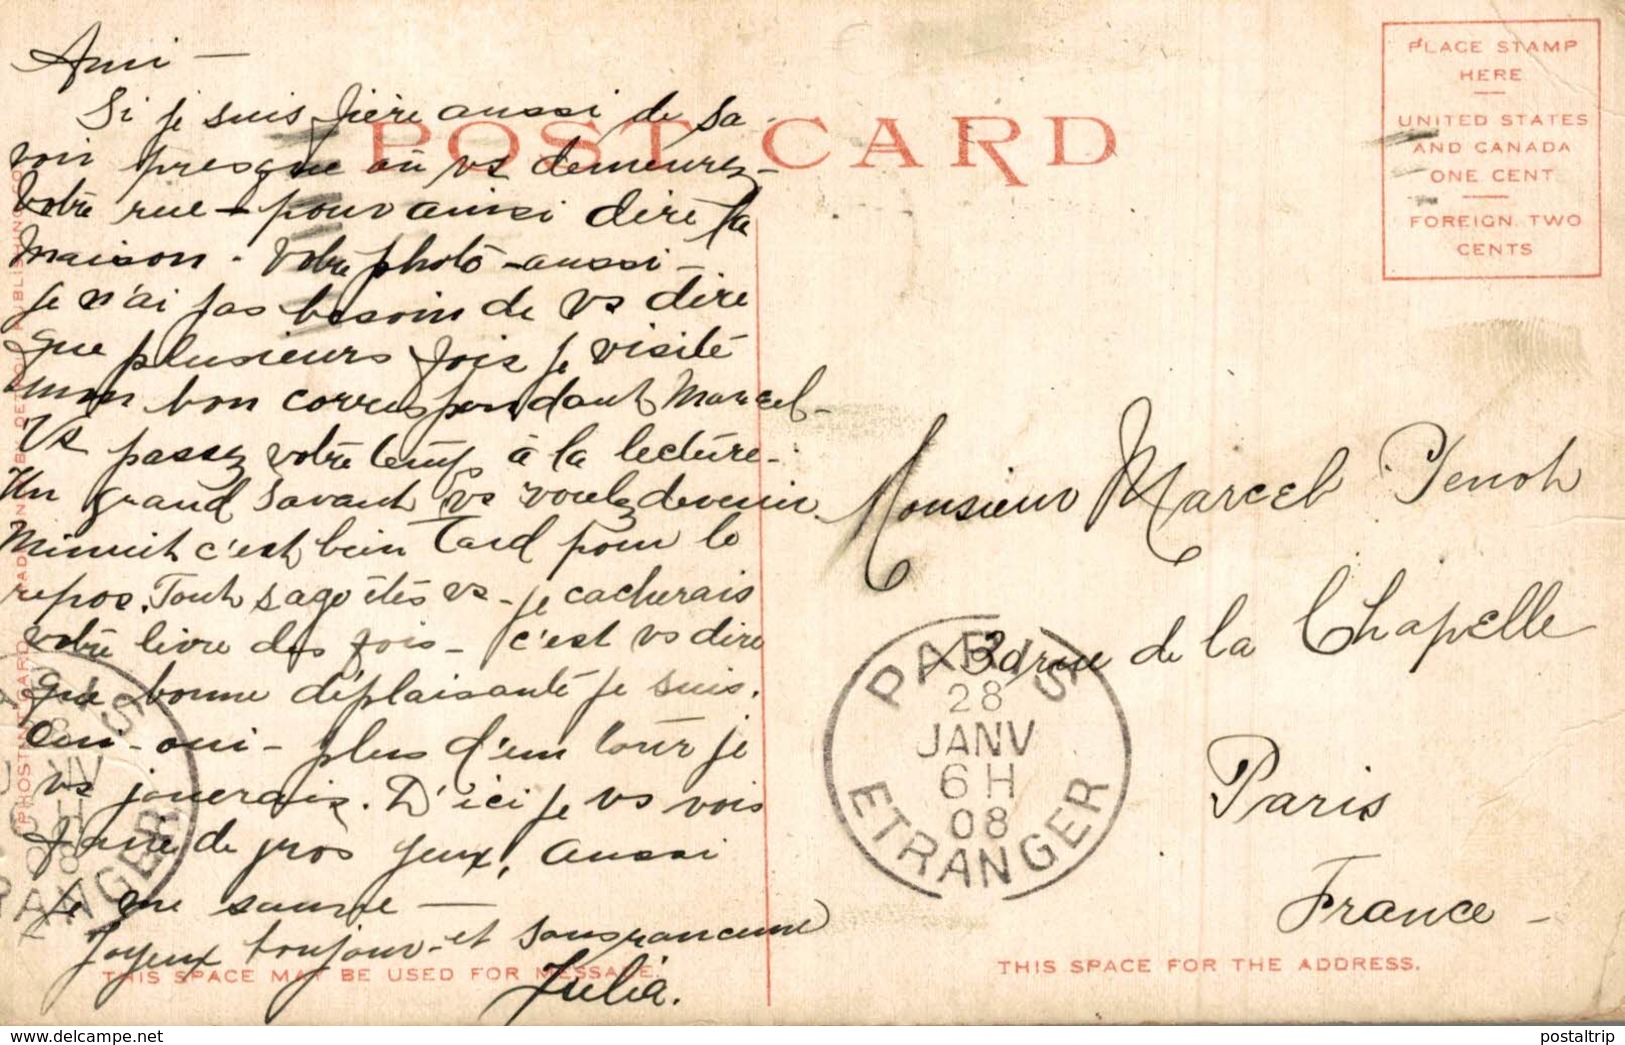 Ami —
Si je suis fière aussi de sa-
voir presque où vs demeurez -
Votre rue - pour ainsi dire la
maison - Votre photo - aussi -
je n'ai pas besoin de vs dire
que plusieurs fois je visité
mon bon correspondant Marcel -
Vs passez votre temps à la lecture -
Un grand savant vs voulez devenir.
Minuit c'est bien tard pour le
repos. Tout sage étés vs - je cacherais
votre livre des fois - c'est vs dire
que bonne déplaisanté je suis.
Oui - oui - plus d'un tour je
vs jouerais. D'ici je vs vois
faire de gros yeux, aussi
je me sauve —
Joyeux toujour - et sans rancune
Julia.
POST CARD
PLACE STAMP
HERE
UNITED STATES
AND CANADA
ONE CENT
FOREIGN. TWO
CENTS
Monsieur Marcel
rue de la Chapelle
Paris
France -
PARIS
28
JANV
6 H
08
ETRANGER
THIS SPACE MAY BE USED FOR MESSAGE.
THIS SPACE FOR THE ADDRESS.
www.delcampe.net
postaltrip